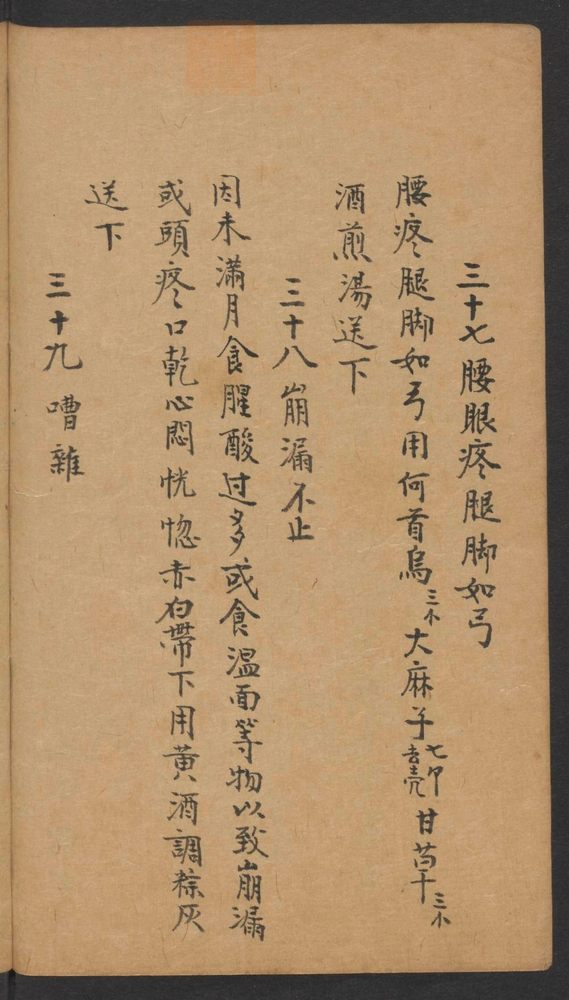 三十七 腰眼疼腿脚如弓
腰疼腿脚如弓用何首烏三小大麻子七卩去壳甘草三小
酒煎湯送下
三十八 崩漏不止
因未滿月食腥酸过多或食温面等物以致崩漏
或頭疼口乾心悶恍惚赤白帶下用黄酒調粽灰
送下
三十九 嘈雜